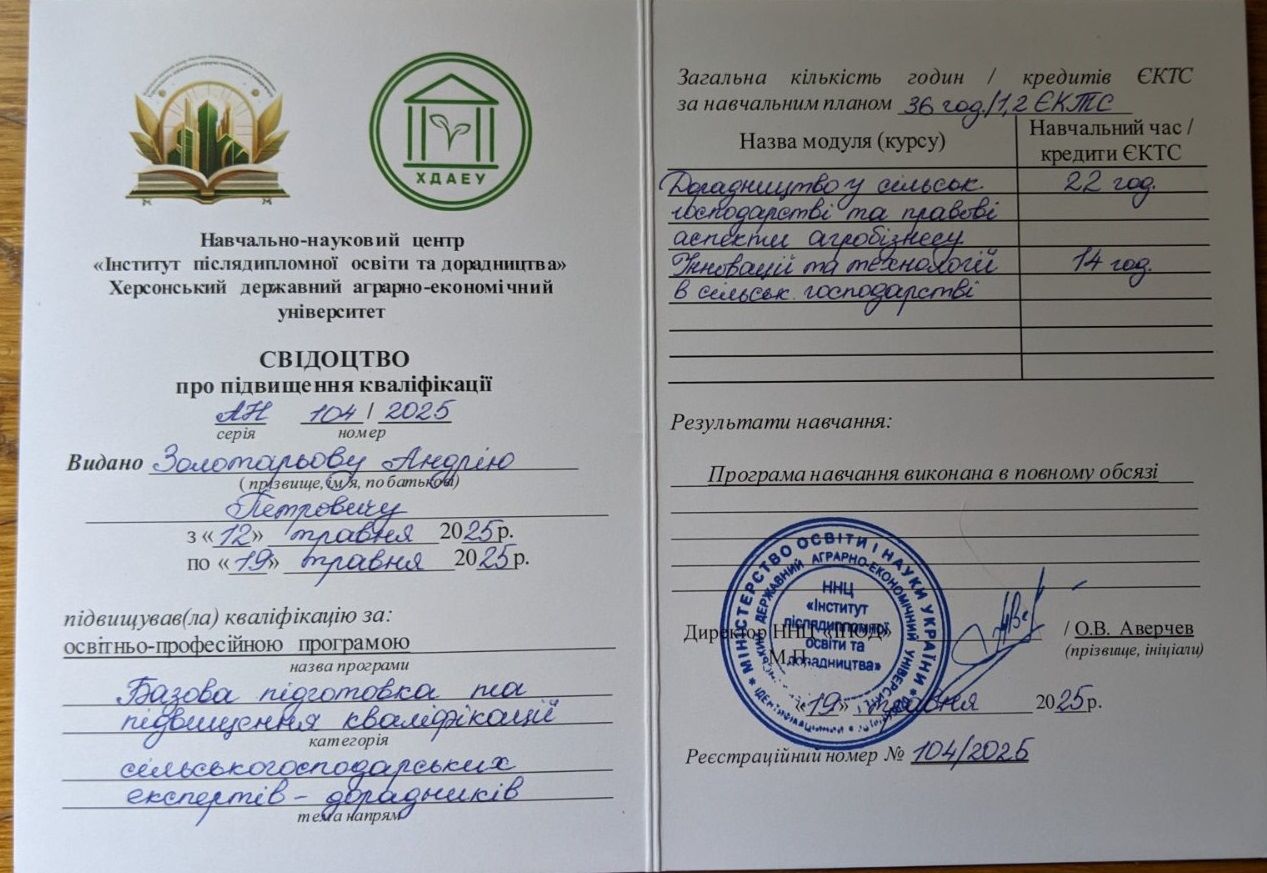 ХДАЕУ
Навчально-науковий центр
«Інститут післядипломної освіти та дорадництва»
Херсонський державний аграрно-економічний
університет
СВІДОЦТВО
про підвищення кваліфікації
АН 104 / 2025
серія номер
Видано Золотарьову Андрію
( прізвище, ім'я, по батькові)
Петровичу
з «12» травня 2025р.
по «19» травня 2025р.
підвищував(ла) кваліфікацію за:
освітньо-професійною програмою
назва програми
Базова підготовка та
підвищення кваліфікації
категорія
сільськогосподарських
експертів – дорадників
тема напрям
Загальна кількість годин / кредитів ЄКТС
за навчальним планом 36 год./1,2 ЄКТС
Назва модуля (курсу) Навчальний час /
кредити ЄКТС
Дорадництво у сільськ. 22 год.
господарстві та правові
аспекти агробізнесу
Інновації та технологій 14 год.
в сільськ. господарстві
Результати навчання:
Програма навчання виконана в повному обсязі
МІНІСТЕРСТВО ОСВІТИ І НАУКИ УКРАЇНИ
ДЕРЖАВНИЙ АГРАРНО-ЕКОНОМІЧНИЙ УНІВЕРСИТЕТ
ННЦ
«Інститут
післядипломної
освіти та
дорадництва»
Директор ННЦ «ІПОД» / О.В. Аверчев
М.П. (прізвище, ініціали)
«19» травня 2025р.
Реєстраційний номер № 104/2025